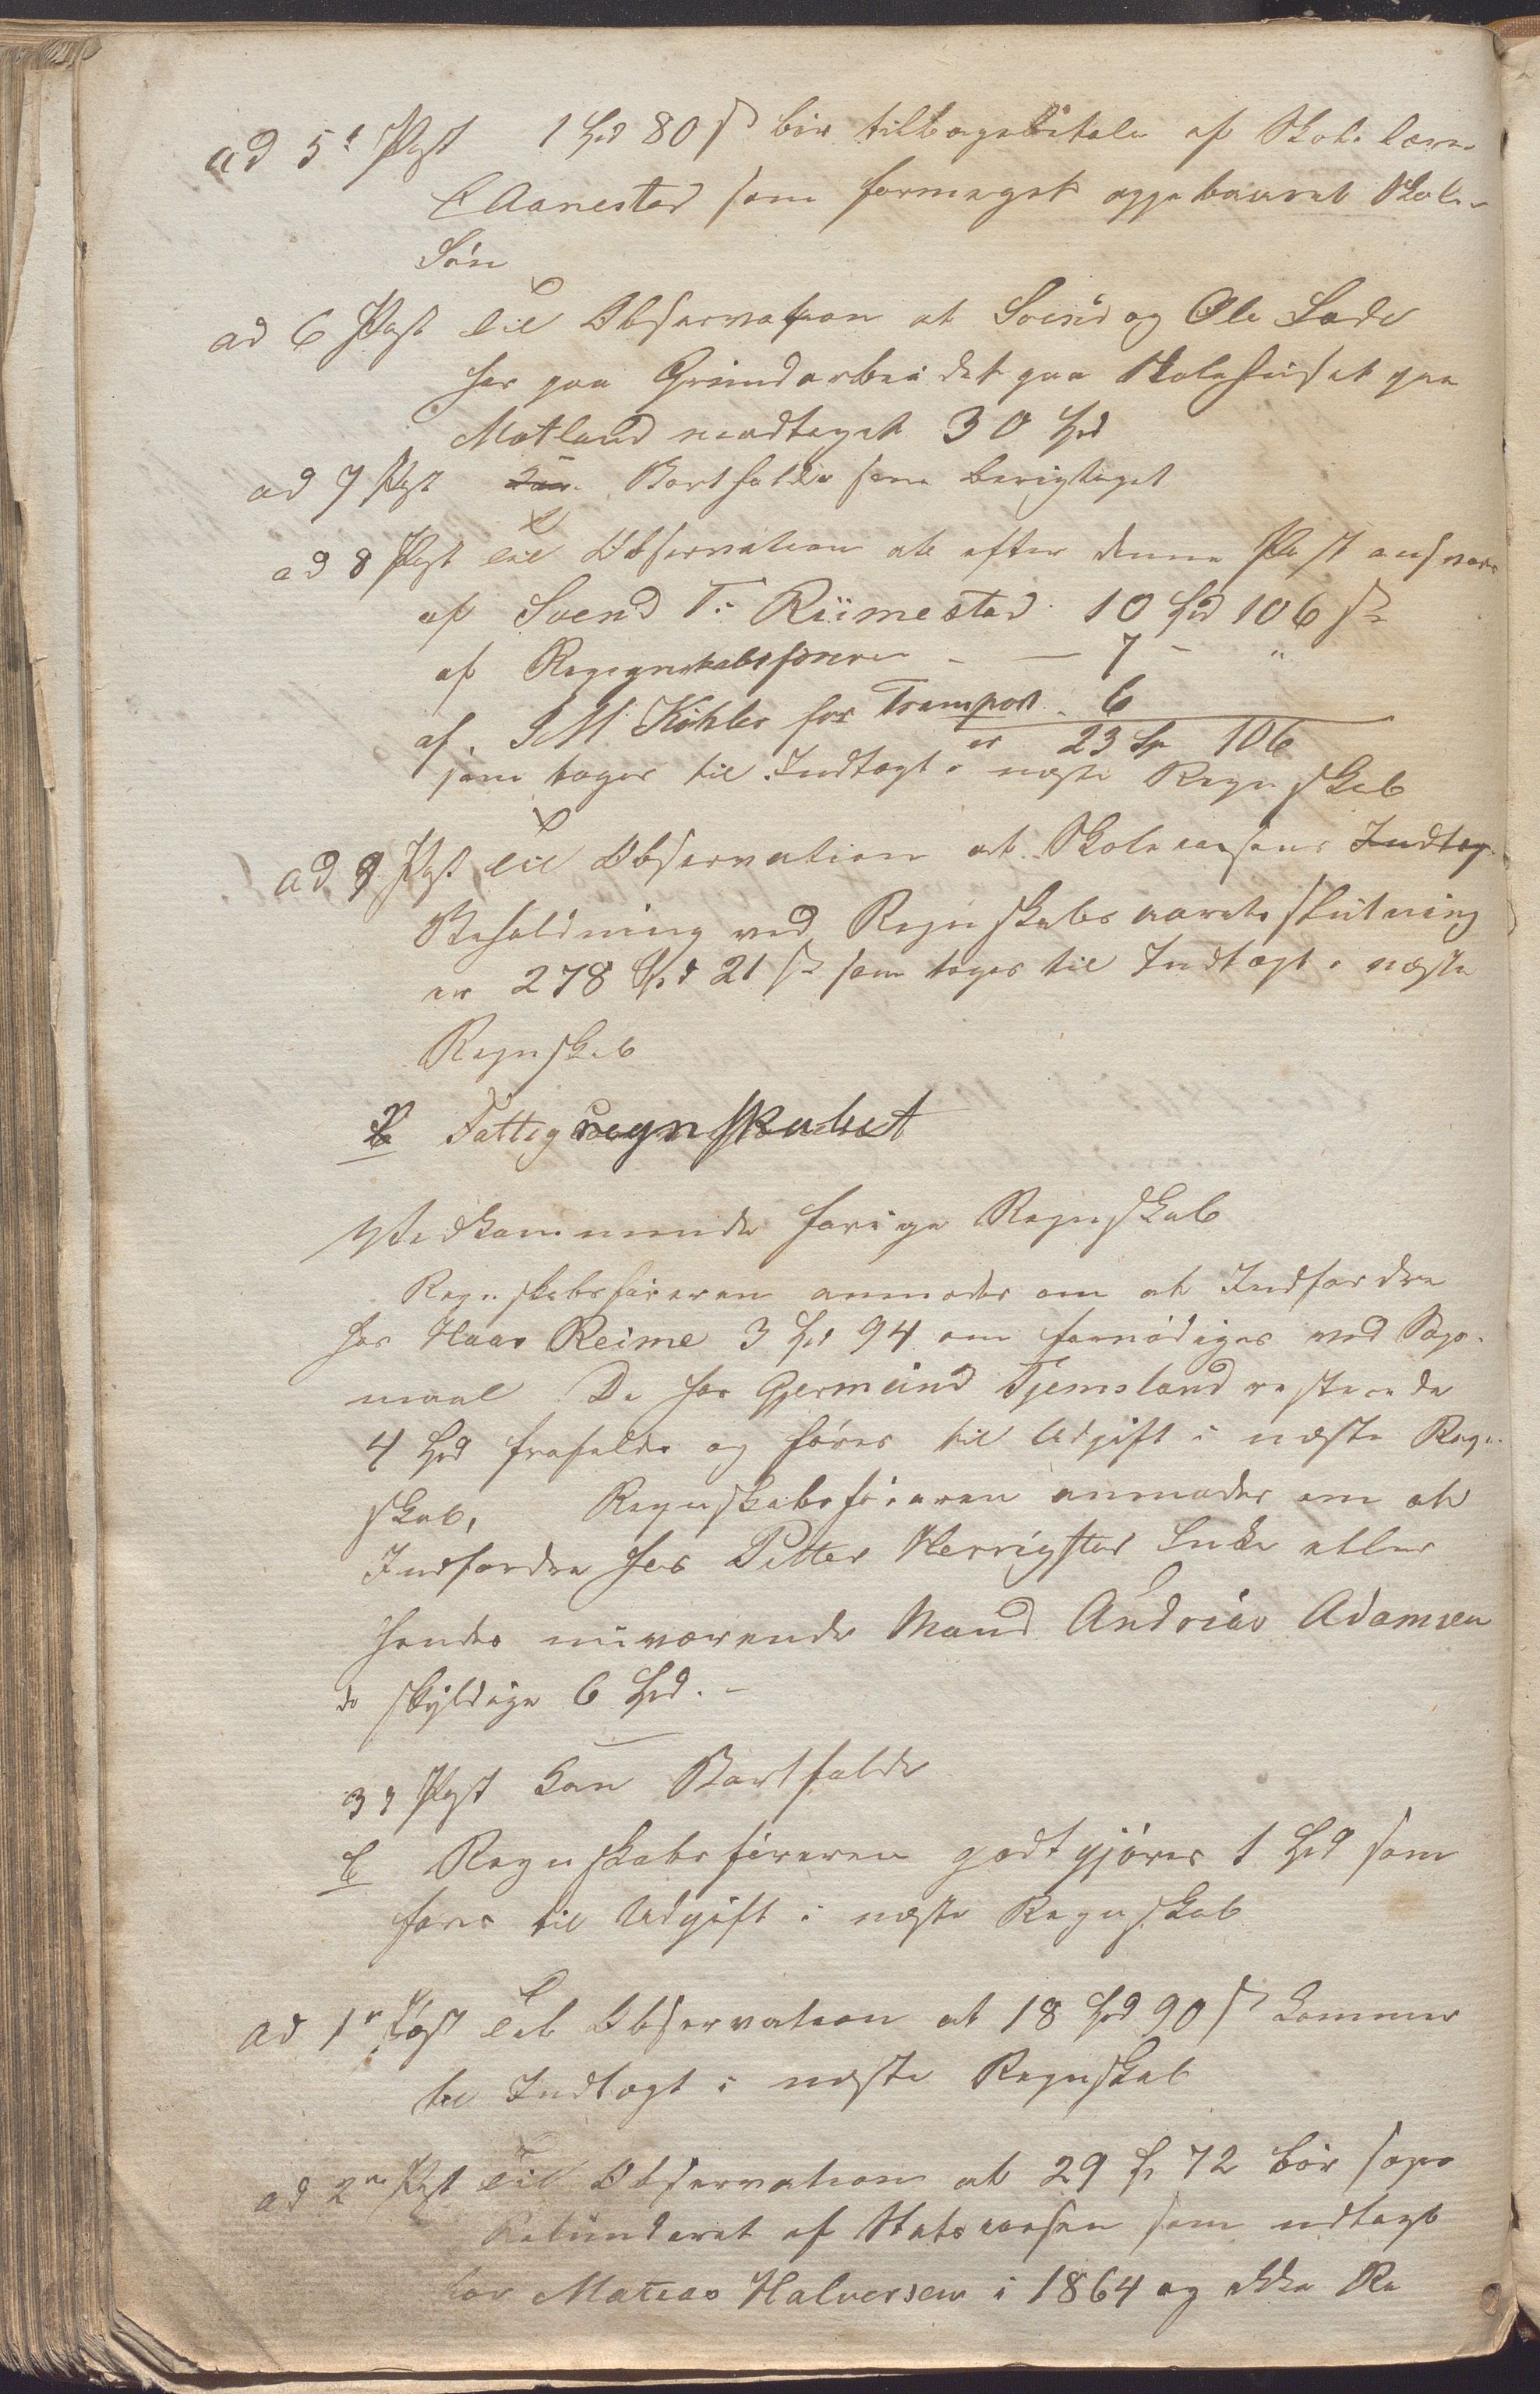 ad 5t Post 1 Spd 80 s bør tilbagebetale af Skolelærer
E Aanestad som formeget oppebaaret Skole-
løn
ad 6 Post Til Observation at Svend og Ole Lode
har paa Grundarbeidet paa Skolehuset paa
Motland modtaget 30 Spd
ad 7 Post Kan Bortfalde som berigtiget
ad 8 Post Til Observation at efter denne Post ansvares
af Svend T. Riimestad 10 Spd 106 s
af Regegnskabsføreren - — 7 - "
af J M Køhler for Transport - 6
er 23 Sp 106
som tages til Indtægt i næste Regnskab
ad 9 Post Til Observation at Skolecassens Indtæg
Beholdning ved Regnskabsaarets slutning
er 278 Spd 21 s som tages til Indtægt i næste
Regnskab
B Fattigregnskabet
Vedkommende forrige Regnskab
Regnskabsføreren anmodes om at Indfordre
hos Haas Reime 3 Spd 94 om fornødiges ved Søgs-
maal De hos Gjermund Tjemsland resterende
4 Spd frafaldes og føres til Udgift i næste Regn-
skab, Regnskabsføreren anmodes om at
Indfordre hos Petter Herrigstad Enke eller
hendes nuværende Mand Andreas Adamsen
de skyldige 6 Spd. -
3die Post Kan Bortfalde
b Regnskabsføreren godtgjøres 1 Spd som
føres til Udgift i næste Regnskab
ad 1e Post Til Observation at 18 Spd 90 s kommer
til Indtægt i næste Regnskab
ad 2n Post Til Observation at 29 Sp 72 bør søges
Refunderet af Statscassen som udlagt
for Matias Halversen i 1864 og ikke Re